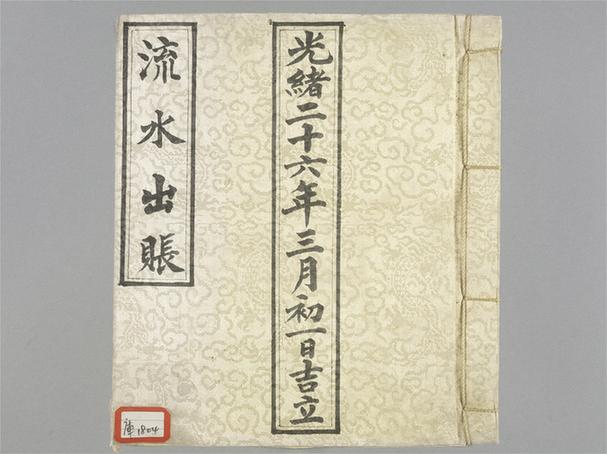 光緒二十六年三月初一日吉立
流水出賬
庫1804